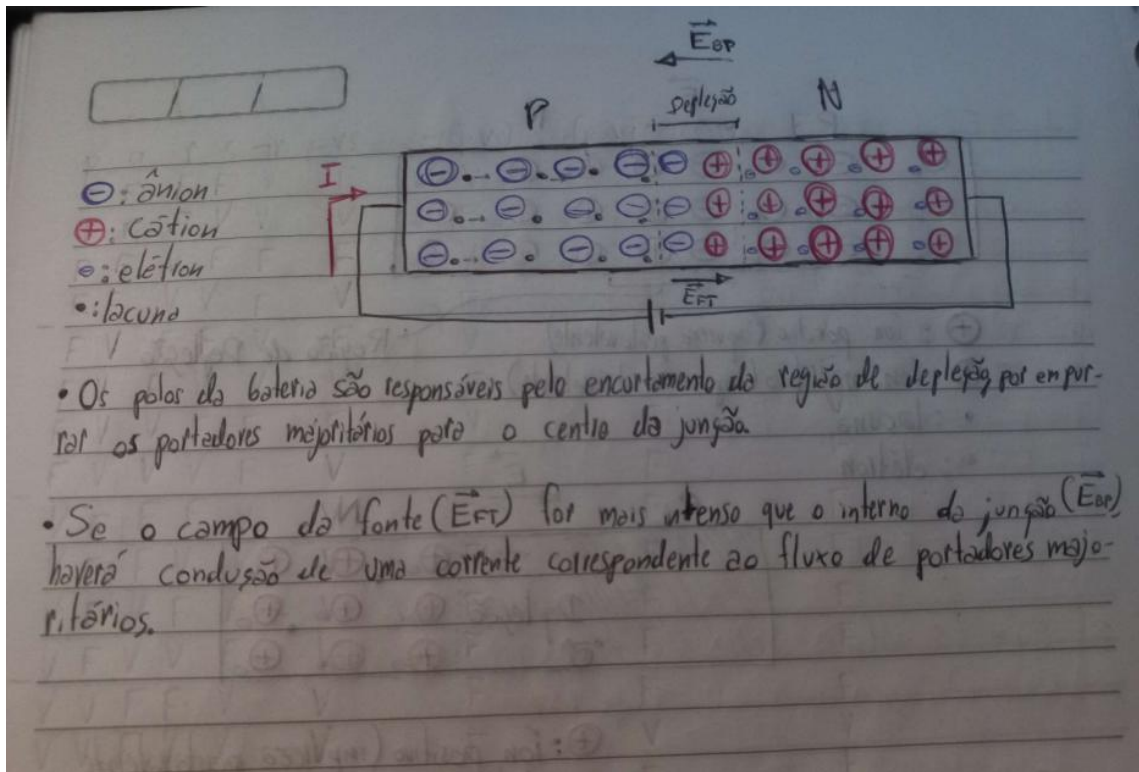 E_BP
P
Depleção
N
I
⊖: ânion
⊕: Cátion
e: elétron
•: lacuna
E_FT
• Os polos da bateria são responsáveis pelo encurtamento da região de depleção, por empur-
rar os portadores majoritários para o centro da junção.
• Se o campo da fonte (E_FT) for mais intenso que o interno da junção (E_BP),
haverá condução de uma corrente correspondente ao fluxo de portadores majo-
ritários.